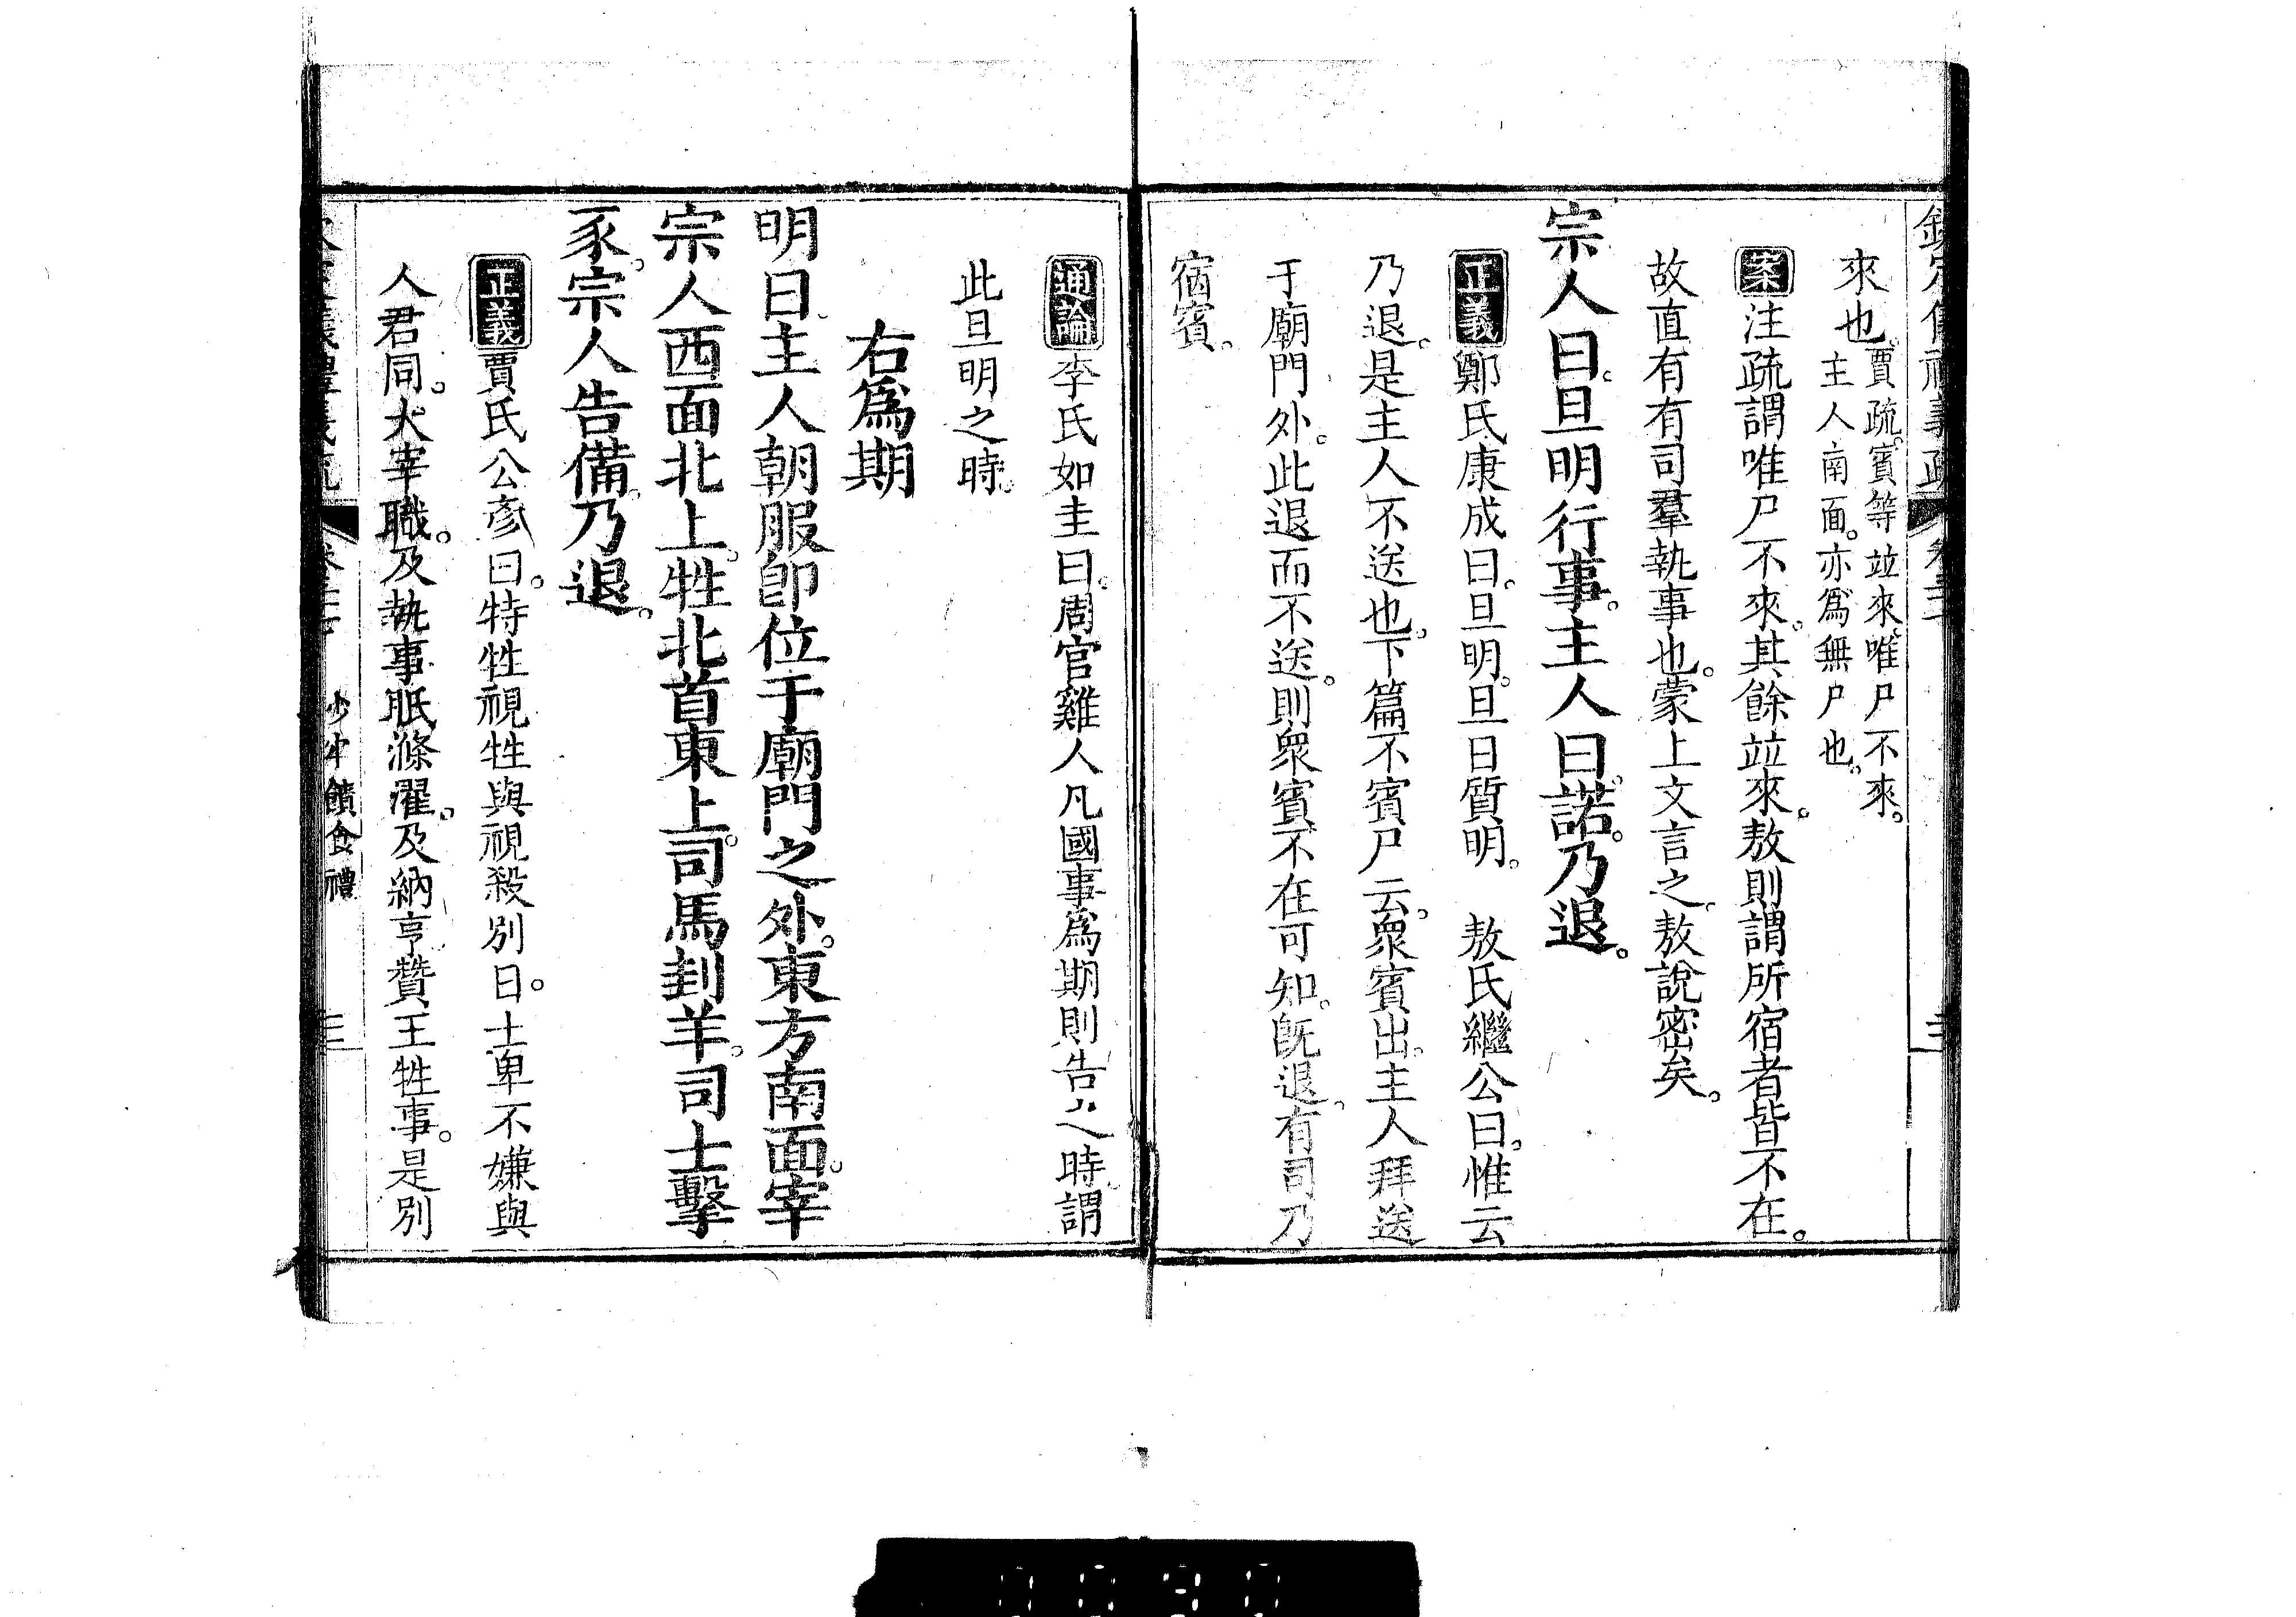 來也。賈疏。賓等並來。唯尸不來。
主人南面。亦爲無尸也。
案注疏謂唯尸不來。其餘並來。敖則謂所宿者皆不在。
故直有有司羣執事也。蒙上文言之。敖說密矣。
宗人曰。旦明行事。主人曰。諾。乃退。
正義鄭氏康成曰。旦明。旦日質明。 敖氏繼公曰。惟云
乃退。是主人不送也。下篇不賓尸云。衆賓出。主人拜送
于廟門外。此退而不送。則衆賓不在可知。旣退。有司乃
宿賓。
通論李氏如圭曰。周官雞人凡國事爲期則告之時。謂
此旦明之時。
右爲期
明日主人朝服卽位于廟門之外。東方南面。宰
宗人西面北上。牲北首東上。司馬刲羊。司士擊
豕。宗人告備。乃退。
正義賈氏公彥曰。特牲視牲與視殺別日。士卑不嫌與
人君同。大宰職。及執事眡滌濯。及納亨贊王牲事。是別
少牢饋食禮